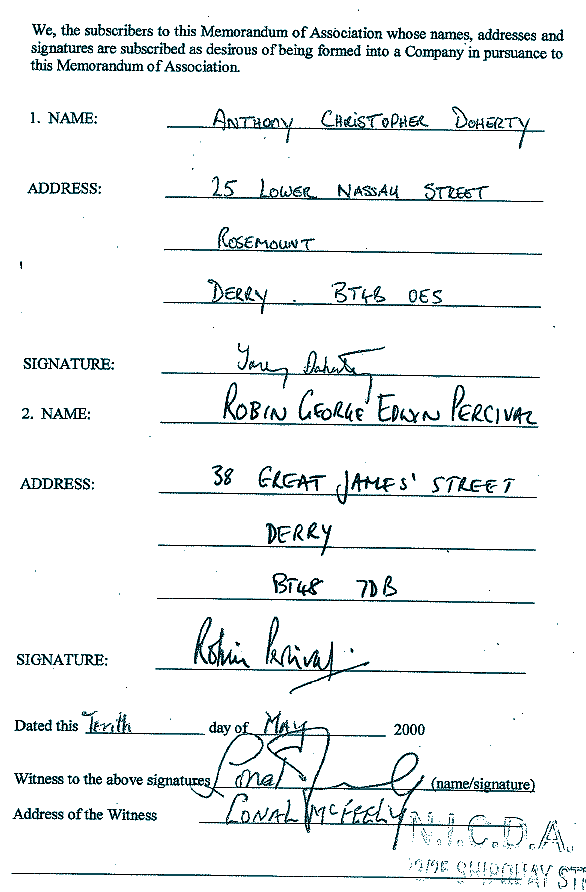 We, the subscribers to this Memorandum of Association whose names, addresses and
signatures are subscribed as desirous of being formed into a Company in pursuance to
this Memorandum of Association.
1. NAME: ANTHONY CHRISTOPHER DOHERTY
ADDRESS: 25 LOWER NASSAU STREET
ROSEMOUNT
DERRY . BT48 0ES
SIGNATURE: Tony Doherty
2. NAME: ROBIN GEORGE EDWYN PERCIVAL
ADDRESS: 38 GREAT JAMES' STREET
DERRY
BT48 7DB
SIGNATURE: Robin Percival
Dated this Tenth day of MAY 2000
Witness to the above signatures (name/signature)
Address of the Witness CONAL McFEELY
N.I.C.D.A.